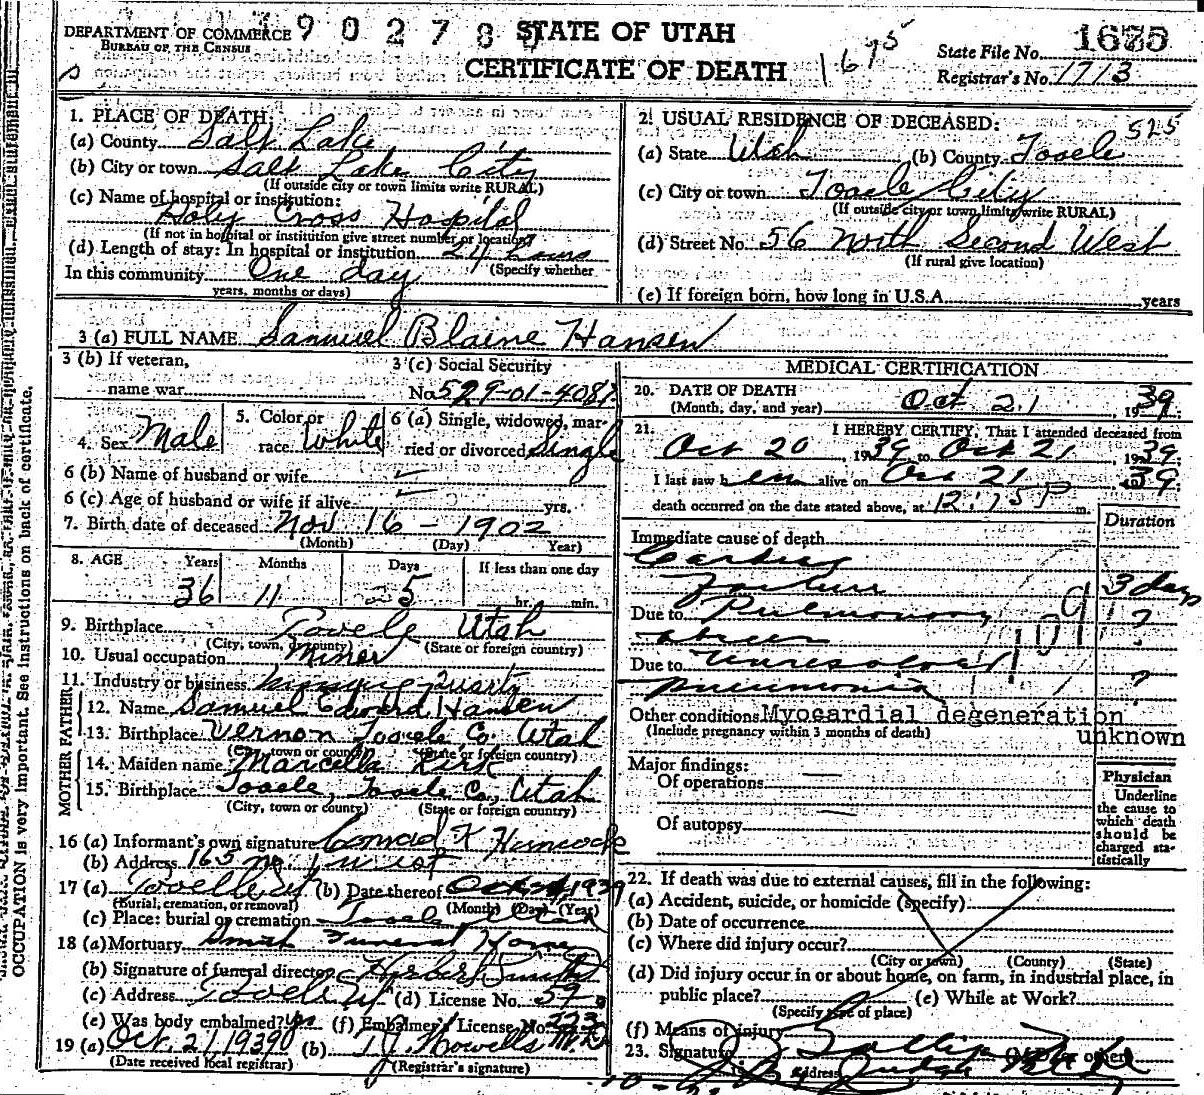 DEPARTMENT OF COMMERCE
BUREAU OF THE CENSUS
90278
STATE OF UTAH
CERTIFICATE OF DEATH
1675
State File No. 1675
Registrar's No. 1713
1. PLACE OF DEATH:
(a) County Salt Lake
(b) City or town Salt Lake City
(If outside city or town limits write RURAL)
(c) Name of hospital or institution:
Holy Cross Hospital
(If not in hospital or institution give street number or location)
(d) Length of stay: In hospital or institution 24 hours
(Specify whether
In this community One day
years, months or days)
2. USUAL RESIDENCE OF DECEASED: 525
(a) State Utah (b) County Tooele
(c) City or town Tooele City
(If outside city or town limits write RURAL)
(d) Street No. 56 North Second West
(If rural give location)
(e) If foreign born, how long in U.S.A. years
3 (a) FULL NAME Samuel Blaine Hansen
3 (b) If veteran,
name war
3 (c) Social Security
No. 529-01-4081
4. Sex Male
5. Color or
race White
6 (a) Single, widowed, mar-
ried or divorced Single
6 (b) Name of husband or wife
6 (c) Age of husband or wife if alive yrs.
7. Birth date of deceased Nov 16 - 1902
(Month) (Day) Year)
8. AGE Years Months Days If less than one day
36 11 5 hr. min.
9. Birthplace Tooele Utah
(City, town, or county) (State or foreign country)
10. Usual occupation Miner
11. Industry or business
FATHER
12. Name Samuel Edward Hansen
13. Birthplace Vernon Tooele Co. Utah
(City, town or county) (State or foreign country)
MOTHER
14. Maiden name Maricella Kirk
15. Birthplace Tooele, Tooele Co., Utah
(City, town or county) (State or foreign country)
16 (a) Informant's own signature Conrad K
(b) Address 165 no 1 west
17 (a) Tooele Ut (b) Date thereof Oct 24, 1939
(Burial, cremation, or removal) (Month) (Day) (Year)
(c) Place: burial or cremation Tooele Utah
18 (a) Mortuary Smith Funeral Home
(b) Signature of funeral director Herbert Smith
(c) Address Tooele Ut (d) License No. 59
(e) Was body embalmed? yes (f) Embalmer's License No. 223
19 (a) Oct. 21 1939 (b) T.J. Howells M.D.
(Date received local registrar) (Registrar's signature)
MEDICAL CERTIFICATION
20. DATE OF DEATH
(Month, day, and year) Oct 21, 1939
21. I HEREBY CERTIFY, That I attended deceased from
Oct 20, 1939 to Oct 21, 1939
I last saw h alive on Oct 21 39
death occurred on the date stated above, at 12:15 P m.
Duration
Immediate cause of death
Cardiac
failure 3 days
Due to Pulmonary ?
109
Due to Unresolved
pneumonia ?
Other conditions Myocardial degeneration
(Include pregnancy within 3 months of death) unknown
Major findings:
Of operations
Of autopsy
Physician
Underline
the cause to
which death
should be
charged sta-
tistically
22. If death was due to external causes, fill in the following:
(a) Accident, suicide, or homicide (specify)
(b) Date of occurrence
(c) Where did injury occur?
(City or town) (County) (State)
(d) Did injury occur in or about home, on farm, in industrial place, in
public place? (e) While at Work?
(Specify type of place)
(f) Means of injury
23. Signature
Address
OCCUPATION is very important. See instructions on back of certificate.